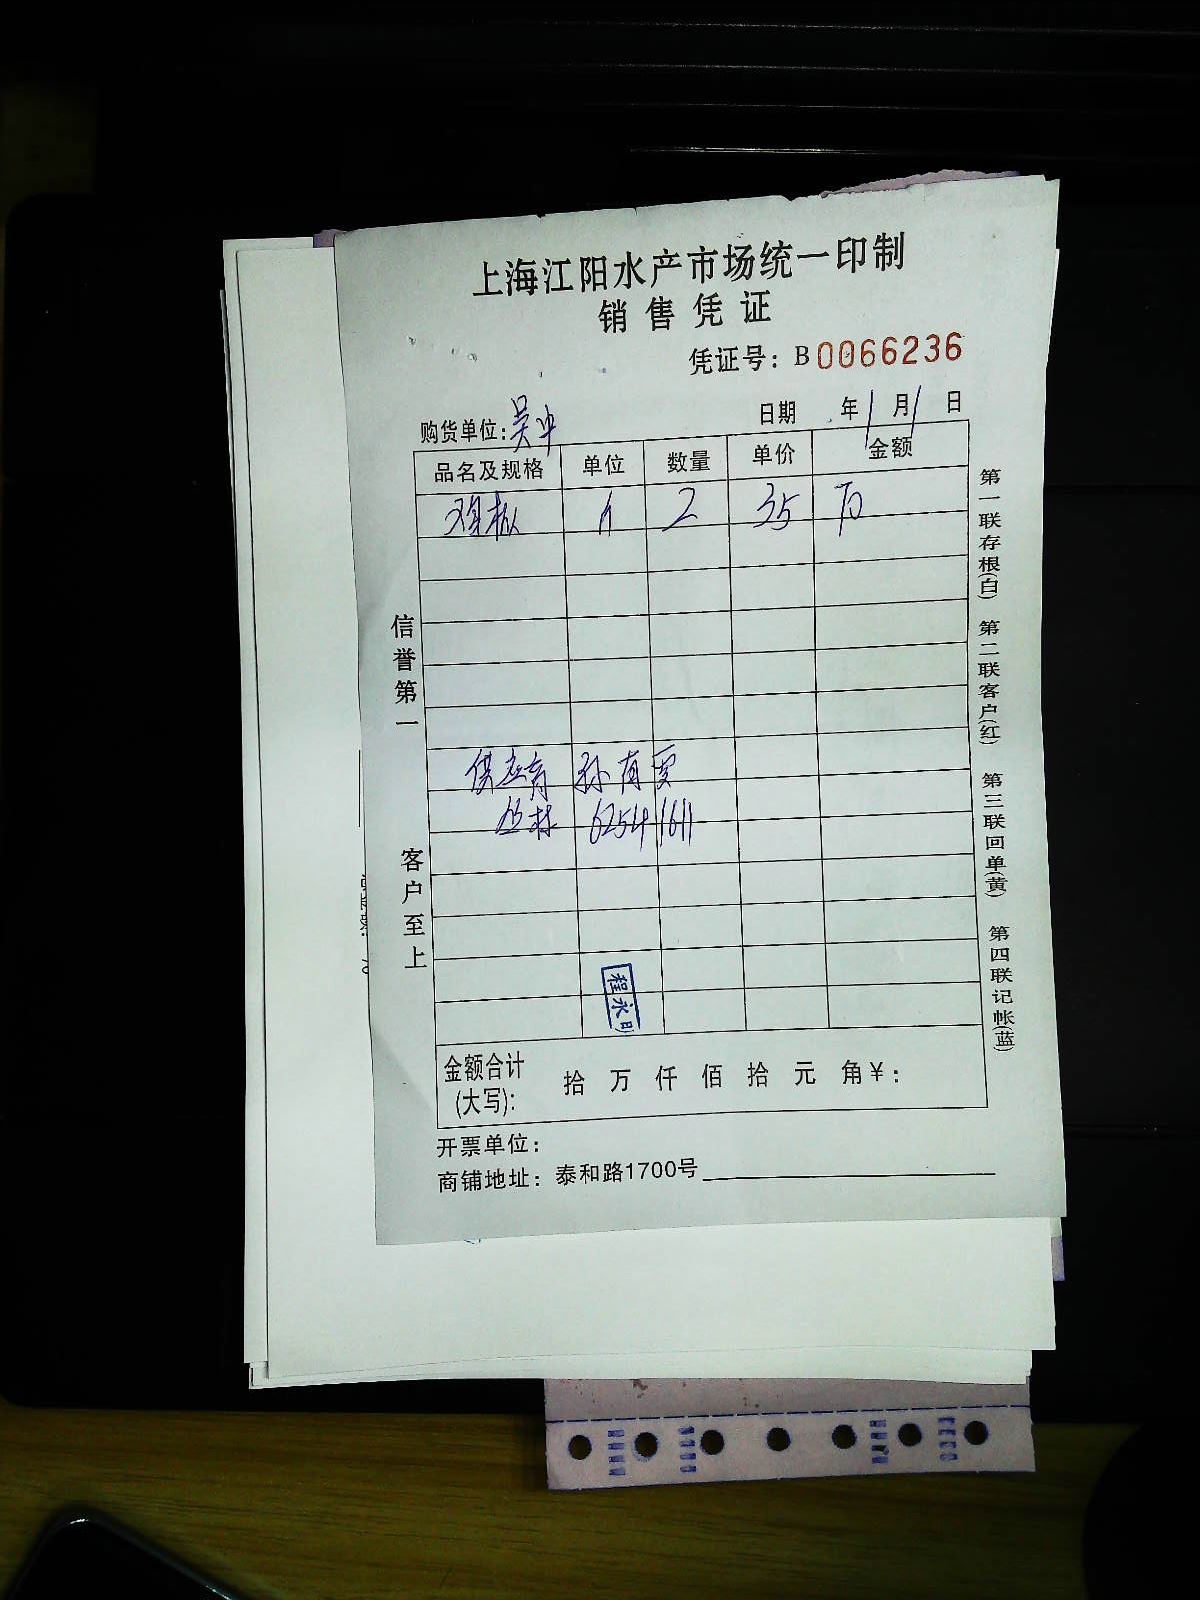 上海江阳水产市场统一印制
销售凭证
凭证号：B0066236
购货单位：吴中 日期 年1月1日
品名及规格 单位 数量 单价 金额
2 35 70
供应商
丛林 62541611
信誉第一
客户至上
程永明
金额合计(大写)： 拾 万 仟 佰 拾 元 角￥：
开票单位：
商铺地址：泰和路1700号
第一联存根(白) 第二联客户(红) 第三联回单(黄) 第四联记帐(蓝)